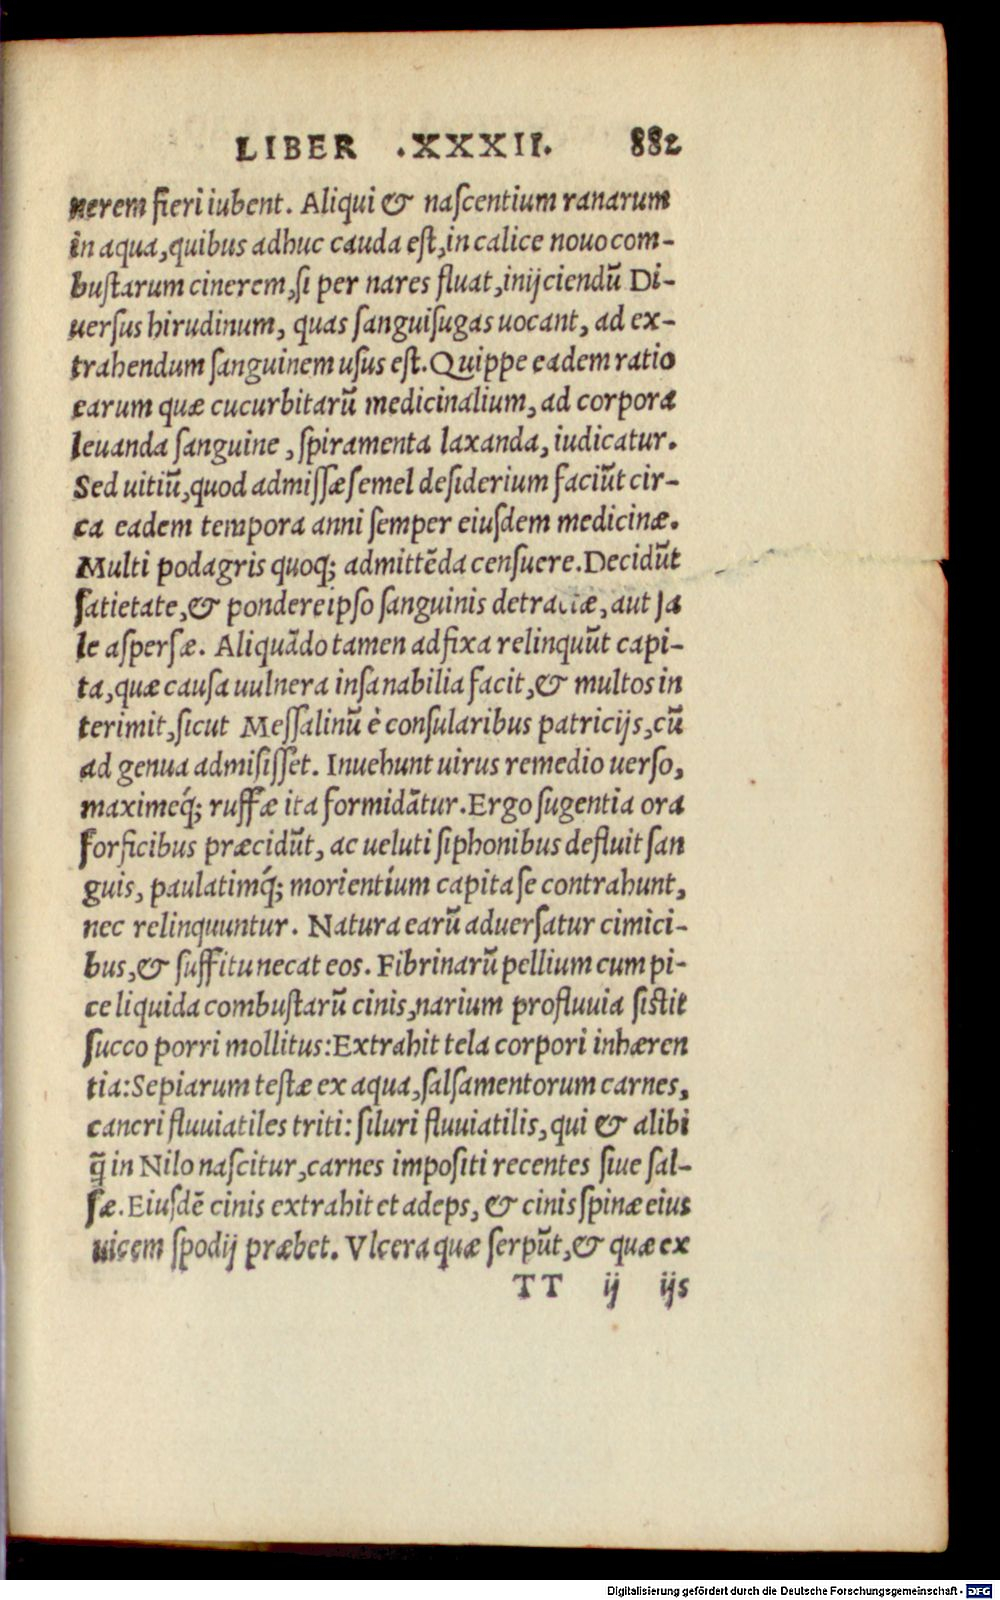 LIBER .XXXII. 882
nerem fieri iubent. Aliqui & naſcentium ranarum
in aqua, quibus adhuc cauda eſt, in calice nouo com-
buſtarum cinerem, ſi per nares fluat, inijciendū Di-
uerſus hirudinum, quas ſanguiſugas uocant, ad ex-
trahendum ſanguinem uſus eſt. Quippe eadem ratio
earum quæ cucurbitarū medicinalium, ad corpora
leuanda ſanguine, ſpiramenta laxanda, iudicatur.
Sed uitiū, quod admiſſæ ſemel deſiderium faciūt cir-
ca eadem tempora anni ſemper eiuſdem medicinæ.
Multi podagris quoq; admittēda cenſuere. Decidūt
ſatietate, & pondere ipſo ſanguinis detractæ, aut ſa
le aſperſæ. Aliquādo tamen adfixa relinquūt capi-
ta, quæ cauſa uulnera inſanabilia facit, & multos in
terimit, ſicut Meſſalinū è conſularibus patricijs, cū
ad genua admiſiſſet. Inuehunt uirus remedio uerſo,
maximeq́; ruffæ ita formidātur. Ergo ſugentia ora
forficibus præcidūt, ac ueluti ſiphonibus defluit ſan
guis, paulatimq́; morientium capita ſe contrahunt,
nec relinquuntur. Natura earū aduerſatur cimici-
bus, & ſuffitu necat eos. Fibrinarū pellium cum pi-
ce liquida combuſtarū cinis, narium profluuia ſiſtit
ſucco porri mollitus: Extrahit tela corpori inhæren
tia: Sepiarum teſtæ ex aqua, ſalſamentorum carnes,
cancri fluuiatiles triti: ſiluri fluuiatilis, qui & alibi
q̄ in Nilo naſcitur, carnes impoſiti recentes ſiue ſal-
ſæ. Eiuſdē cinis extrahit et adeps, & cinis ſpinæ eius
uicem ſpodij præbet. Vlcera quæ ſerpūt, & quæ ex
TT ij ijs
Digitalisierung gefördert durch die Deutsche Forschungsgemeinschaft - DFG